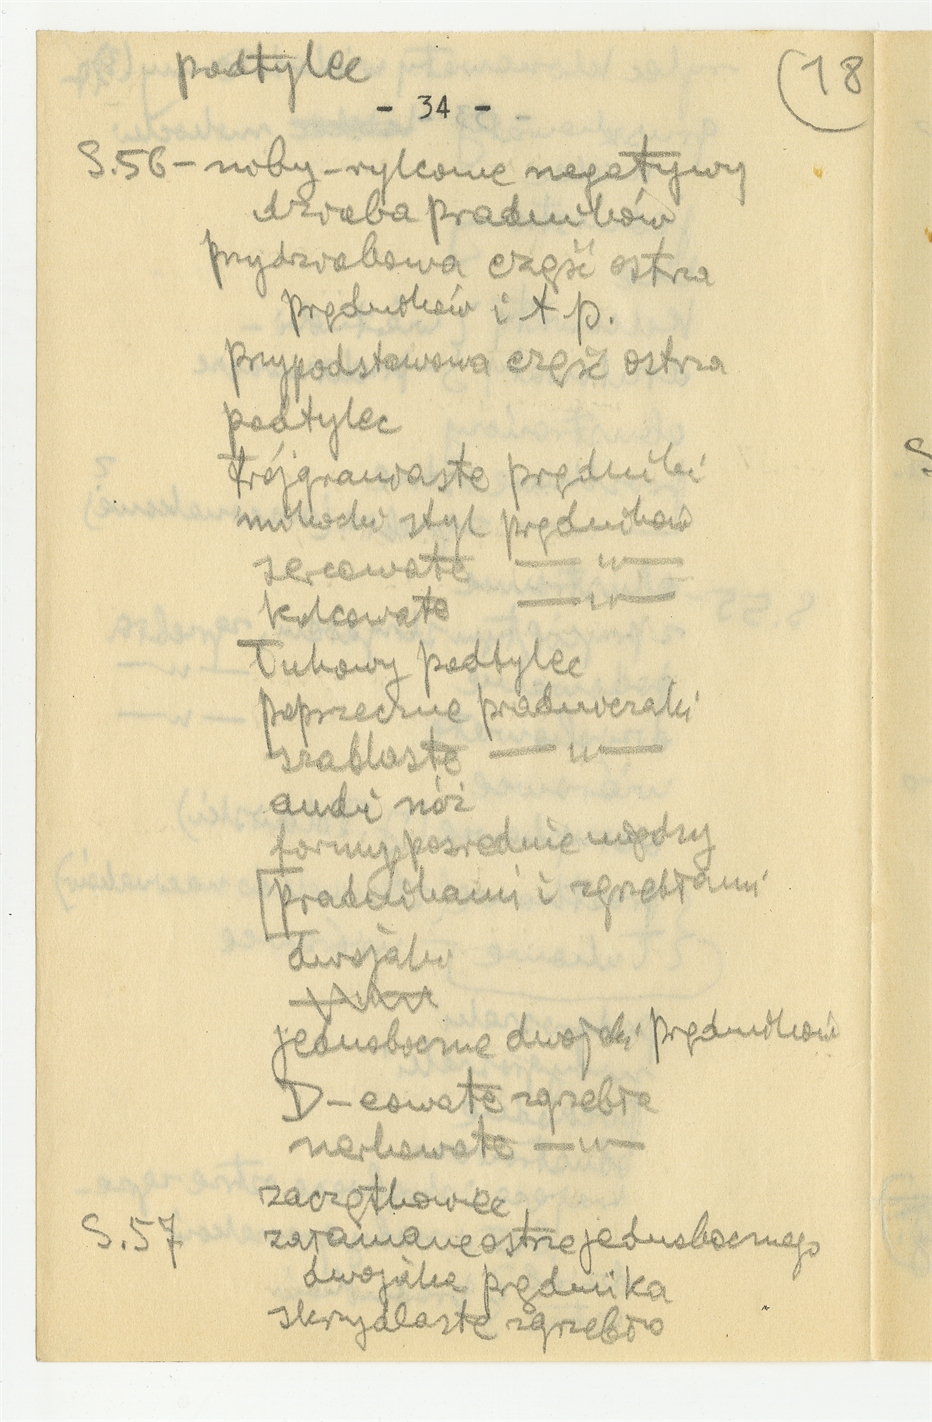 podtylce
- 34 -
(18
S.56 - niby-rylcowe negatywy
dzioba prądników
przydziobowa część ostrza
prądników i t p.
przypodstawowa część ostrza
podtylec
trójgraniaste prądniki
mikocki styl prądników
sercowate —"—
kolcowate —"—
Łukowy podtylec
poprzeczne prądniczaki
szablaste —"—
audi nóż
formy pośrednie między
prądnikami i zgrzebłami
dwojaki
jednoboczne dwojaki prądników
D-cowate zgrzebła
nerkowate —"—
zaczątkowiec
S.57 załamane ostrze jednobocznego
dwojaka prądnika
skrzydlaste zgrzebło